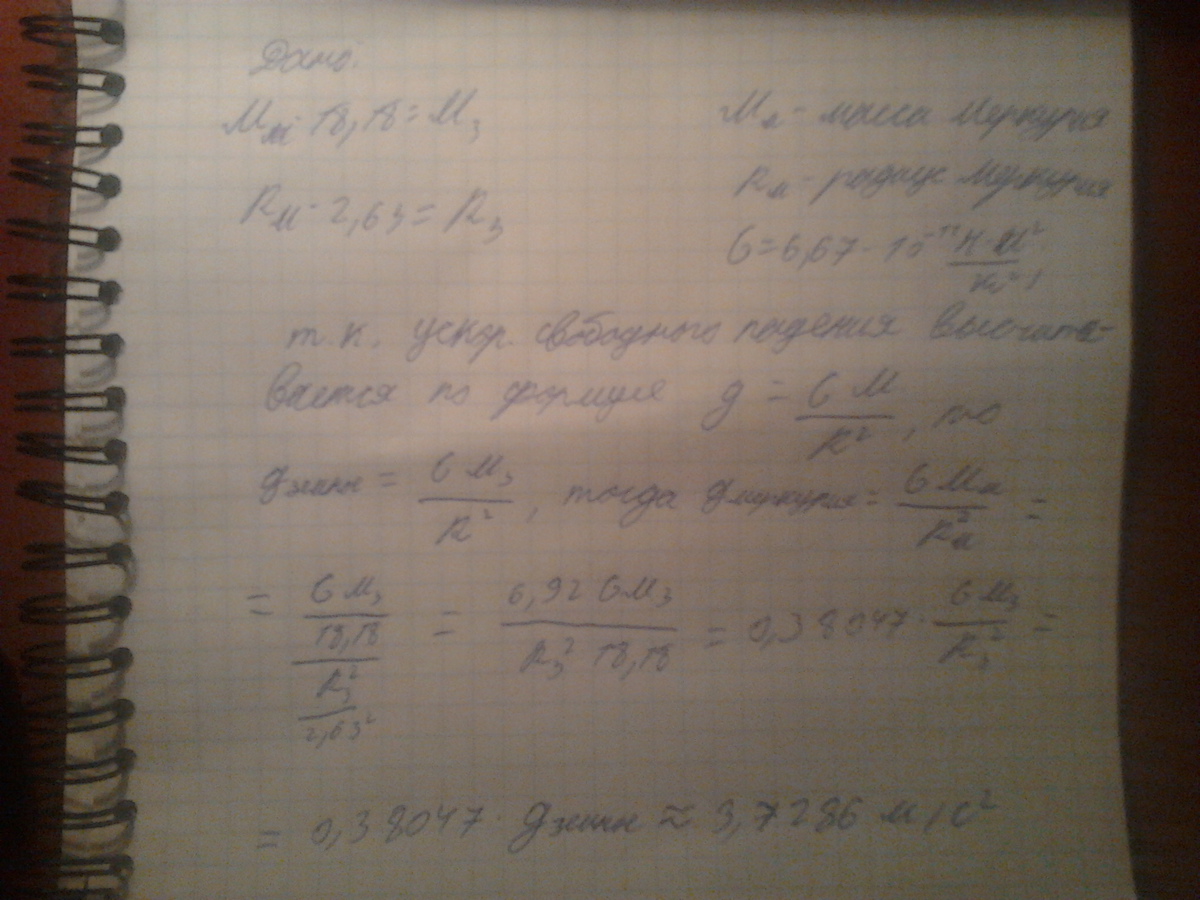 Дано:
Mм · 18,18 = Mз
Mм - масса Меркурия
Rм - радиус Меркурия
Rм · 2,63 = Rз
G = 6,67 · 10⁻¹¹ Н·м²/кг²
т.к. ускор. свободного падения высчиты-
вается по формуле g = GM/R², то
gземли = GMз/R², тогда gмеркурия = GMм/Rм² =
= (GMз/18,18)/(Rз²/2,63²) = 6,92GMз/(Rз² 18,18) = 0,38047 · GMз/Rз² =
= 0,38047 · gземли ≈ 3,7286 м/с²